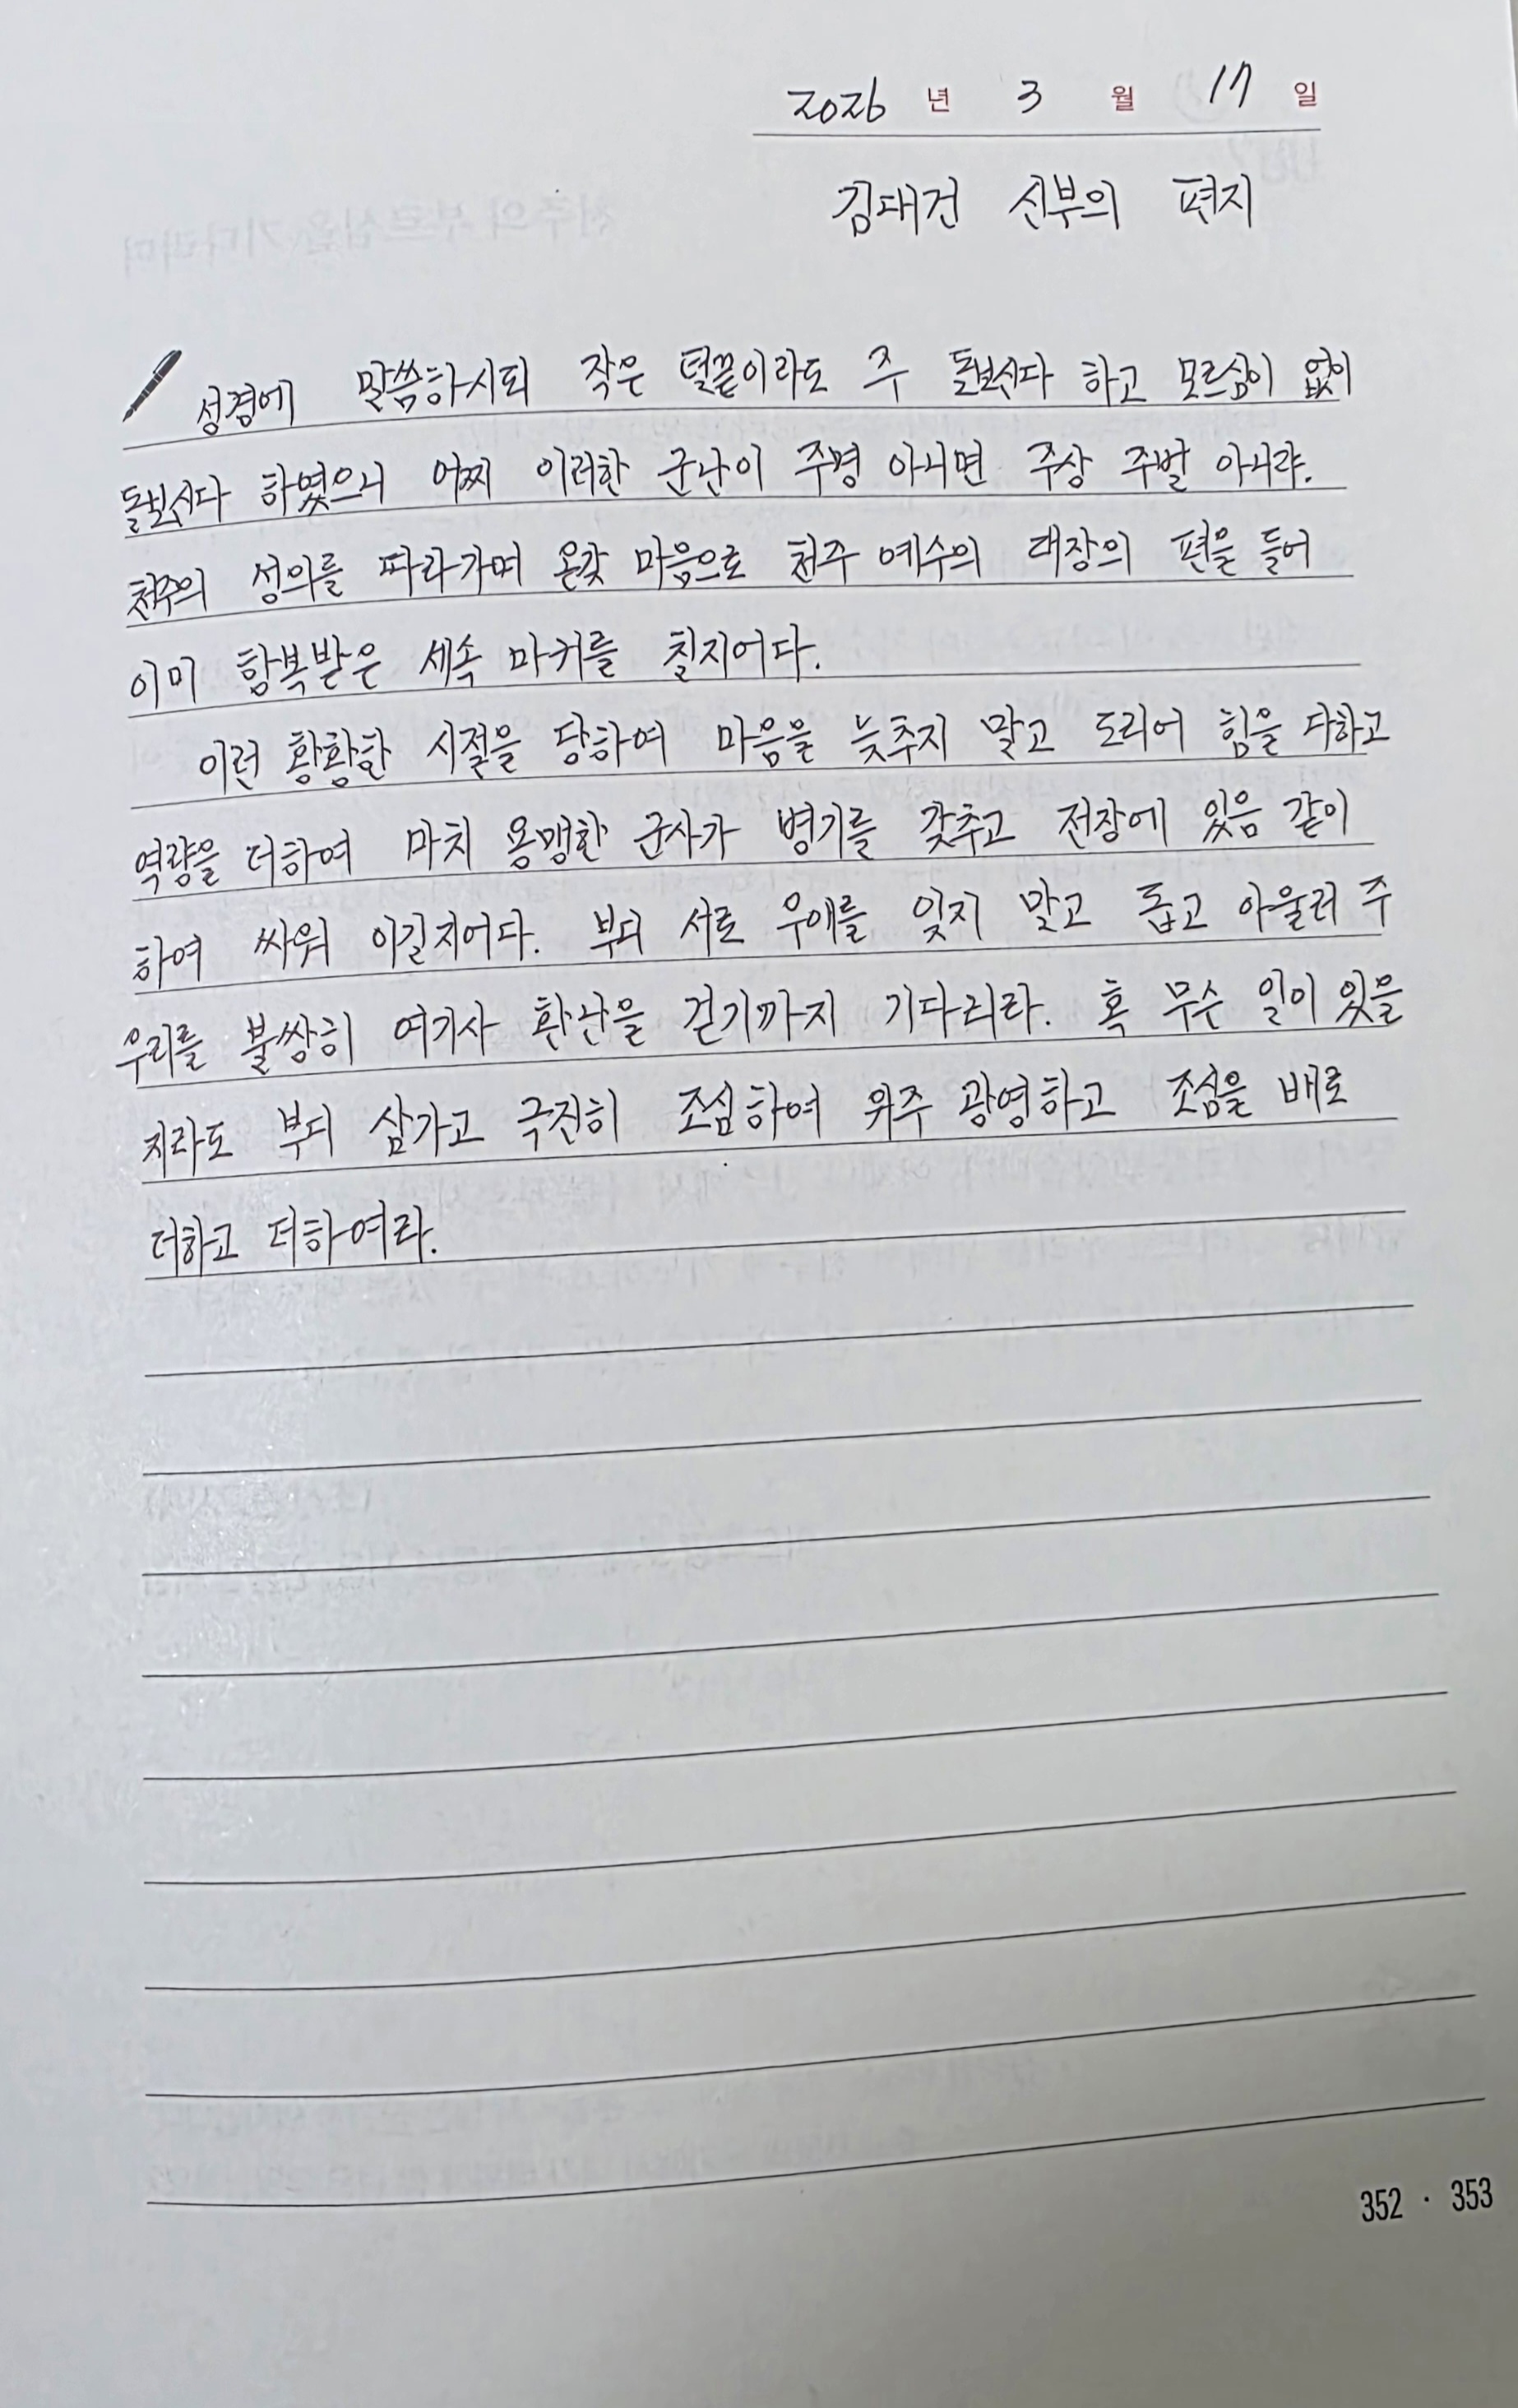 2026 년 3 월 17 일
김대건 신부의 편지
성경에 말씀하시되 작은 털끝이라도 주 돌보신다 하고 모르심이 없이
돌보신다 하였으니 어찌 이러한 군난이 주명 아니면 주상 주벌 아니랴.
천주의 성의를 따라가며 온갖 마음으로 천주 예수의 대장의 편을 들어
이미 항복받은 세속 마귀를 칠지어다.
이런 황황한 시절을 당하여 마음을 늦추지 말고 도리어 힘을 다하고
역량을 더하여 마치 용맹한 군사가 병기를 갖추고 전장에 있음 같이
하여 싸워 이길지어다. 부디 서로 우애를 잊지 말고 돕고 아울러 주
우리를 불쌍히 여기사 환난을 걷기까지 기다리라. 혹 무슨 일이 있을
지라도 부디 삼가고 극진히 조심하여 위주 광영하고 조심을 배로
더하고 더하여라.
352 · 353